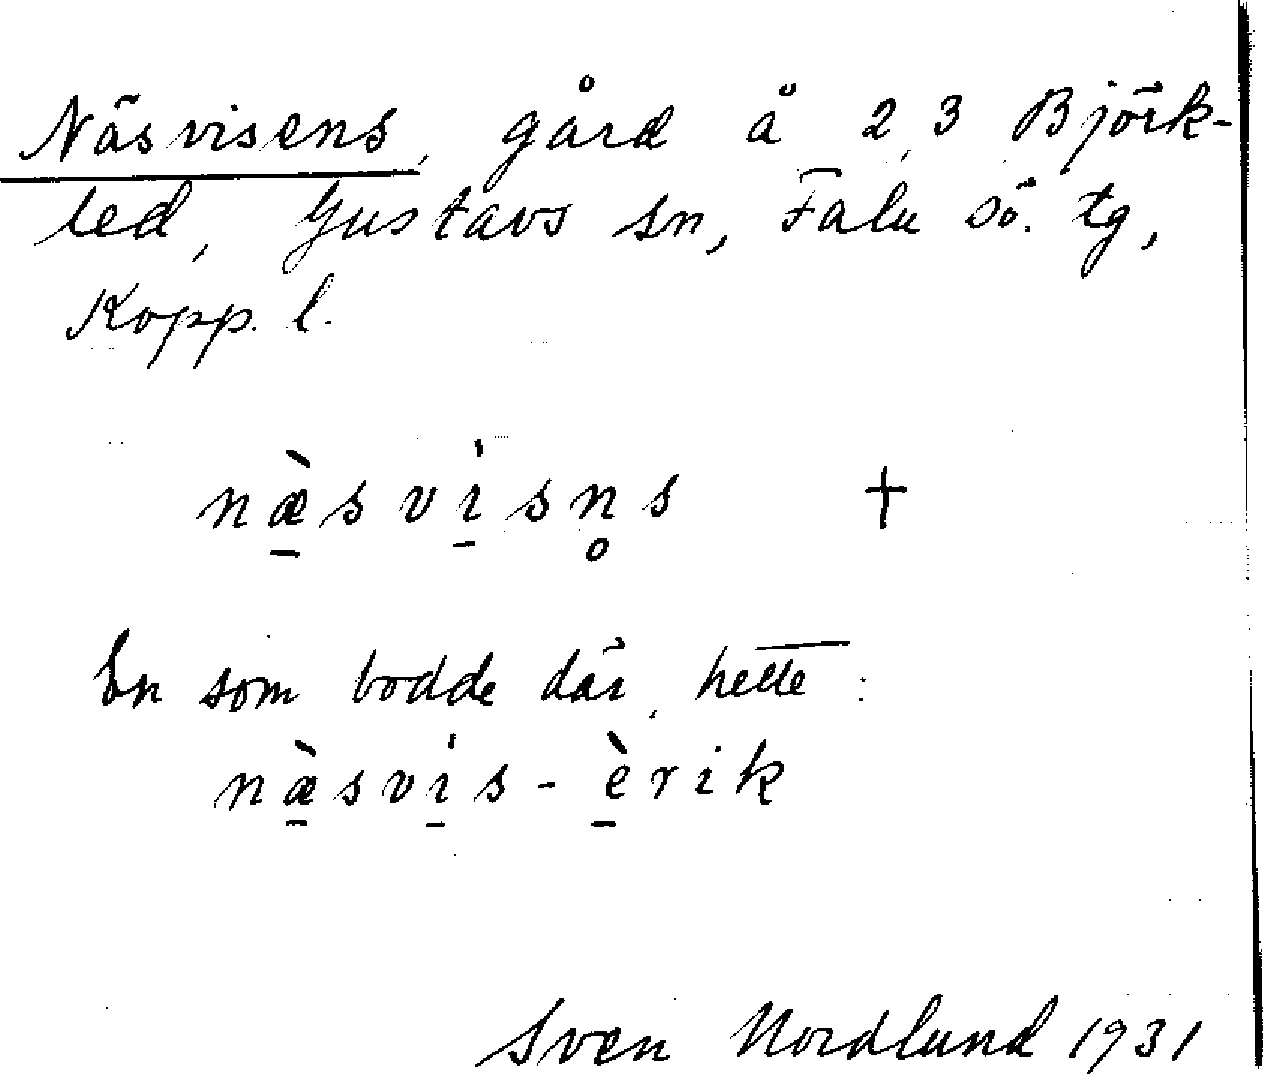 Näsvisens, gård å 2,3 Björk-
led, Gustavs sn, Falu sö. tg,
Kopp. l.
næ̠̀svi̠̍sn̥s +
En som bodde där, hette:
næ̠̀svi̠̍s-è̠rik
Sven Nordlund 1931